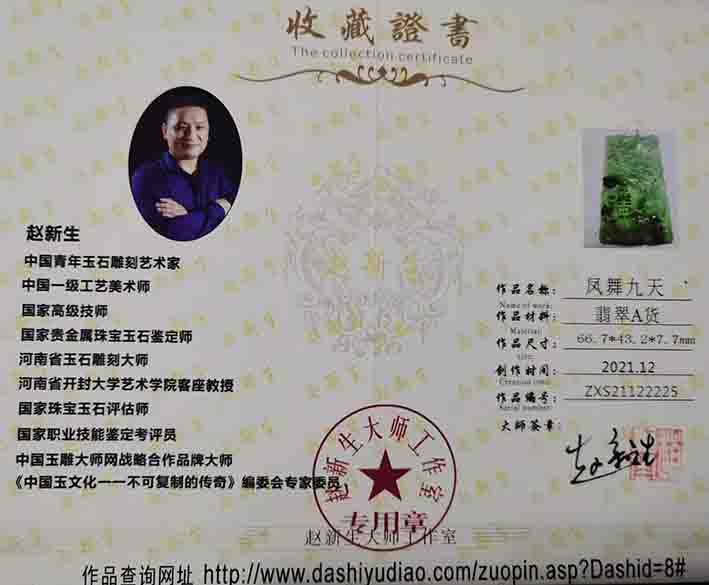 收藏證書
The collection certificate
赵新生
中国青年玉石雕刻艺术家
中国一级工艺美术师
国家高级技师
国家贵金属珠宝玉石鉴定师
河南省玉石雕刻大师
河南省开封大学艺术学院客座教授
国家珠宝玉石评估师
国家职业技能鉴定考评员
中国玉雕大师网战略合作品牌大师
《中国玉文化一一不可复制的传奇》编委会专家委员
赵新生
作品名称： 凤舞九天
Name of work:
作品材料： 翡翠A货
Material:
作品尺寸： 66.7*43.2*7.7mm
size:
创作时间： 2021.12
Creation time:
作品编号： ZXS21122225
Serial number:
大师签章：
赵新生
赵新生大师工作室
专用章
赵新生大师工作室
作品查询网址 http://www.dashiyudiao.com/zuopin.asp?Dashid=8#